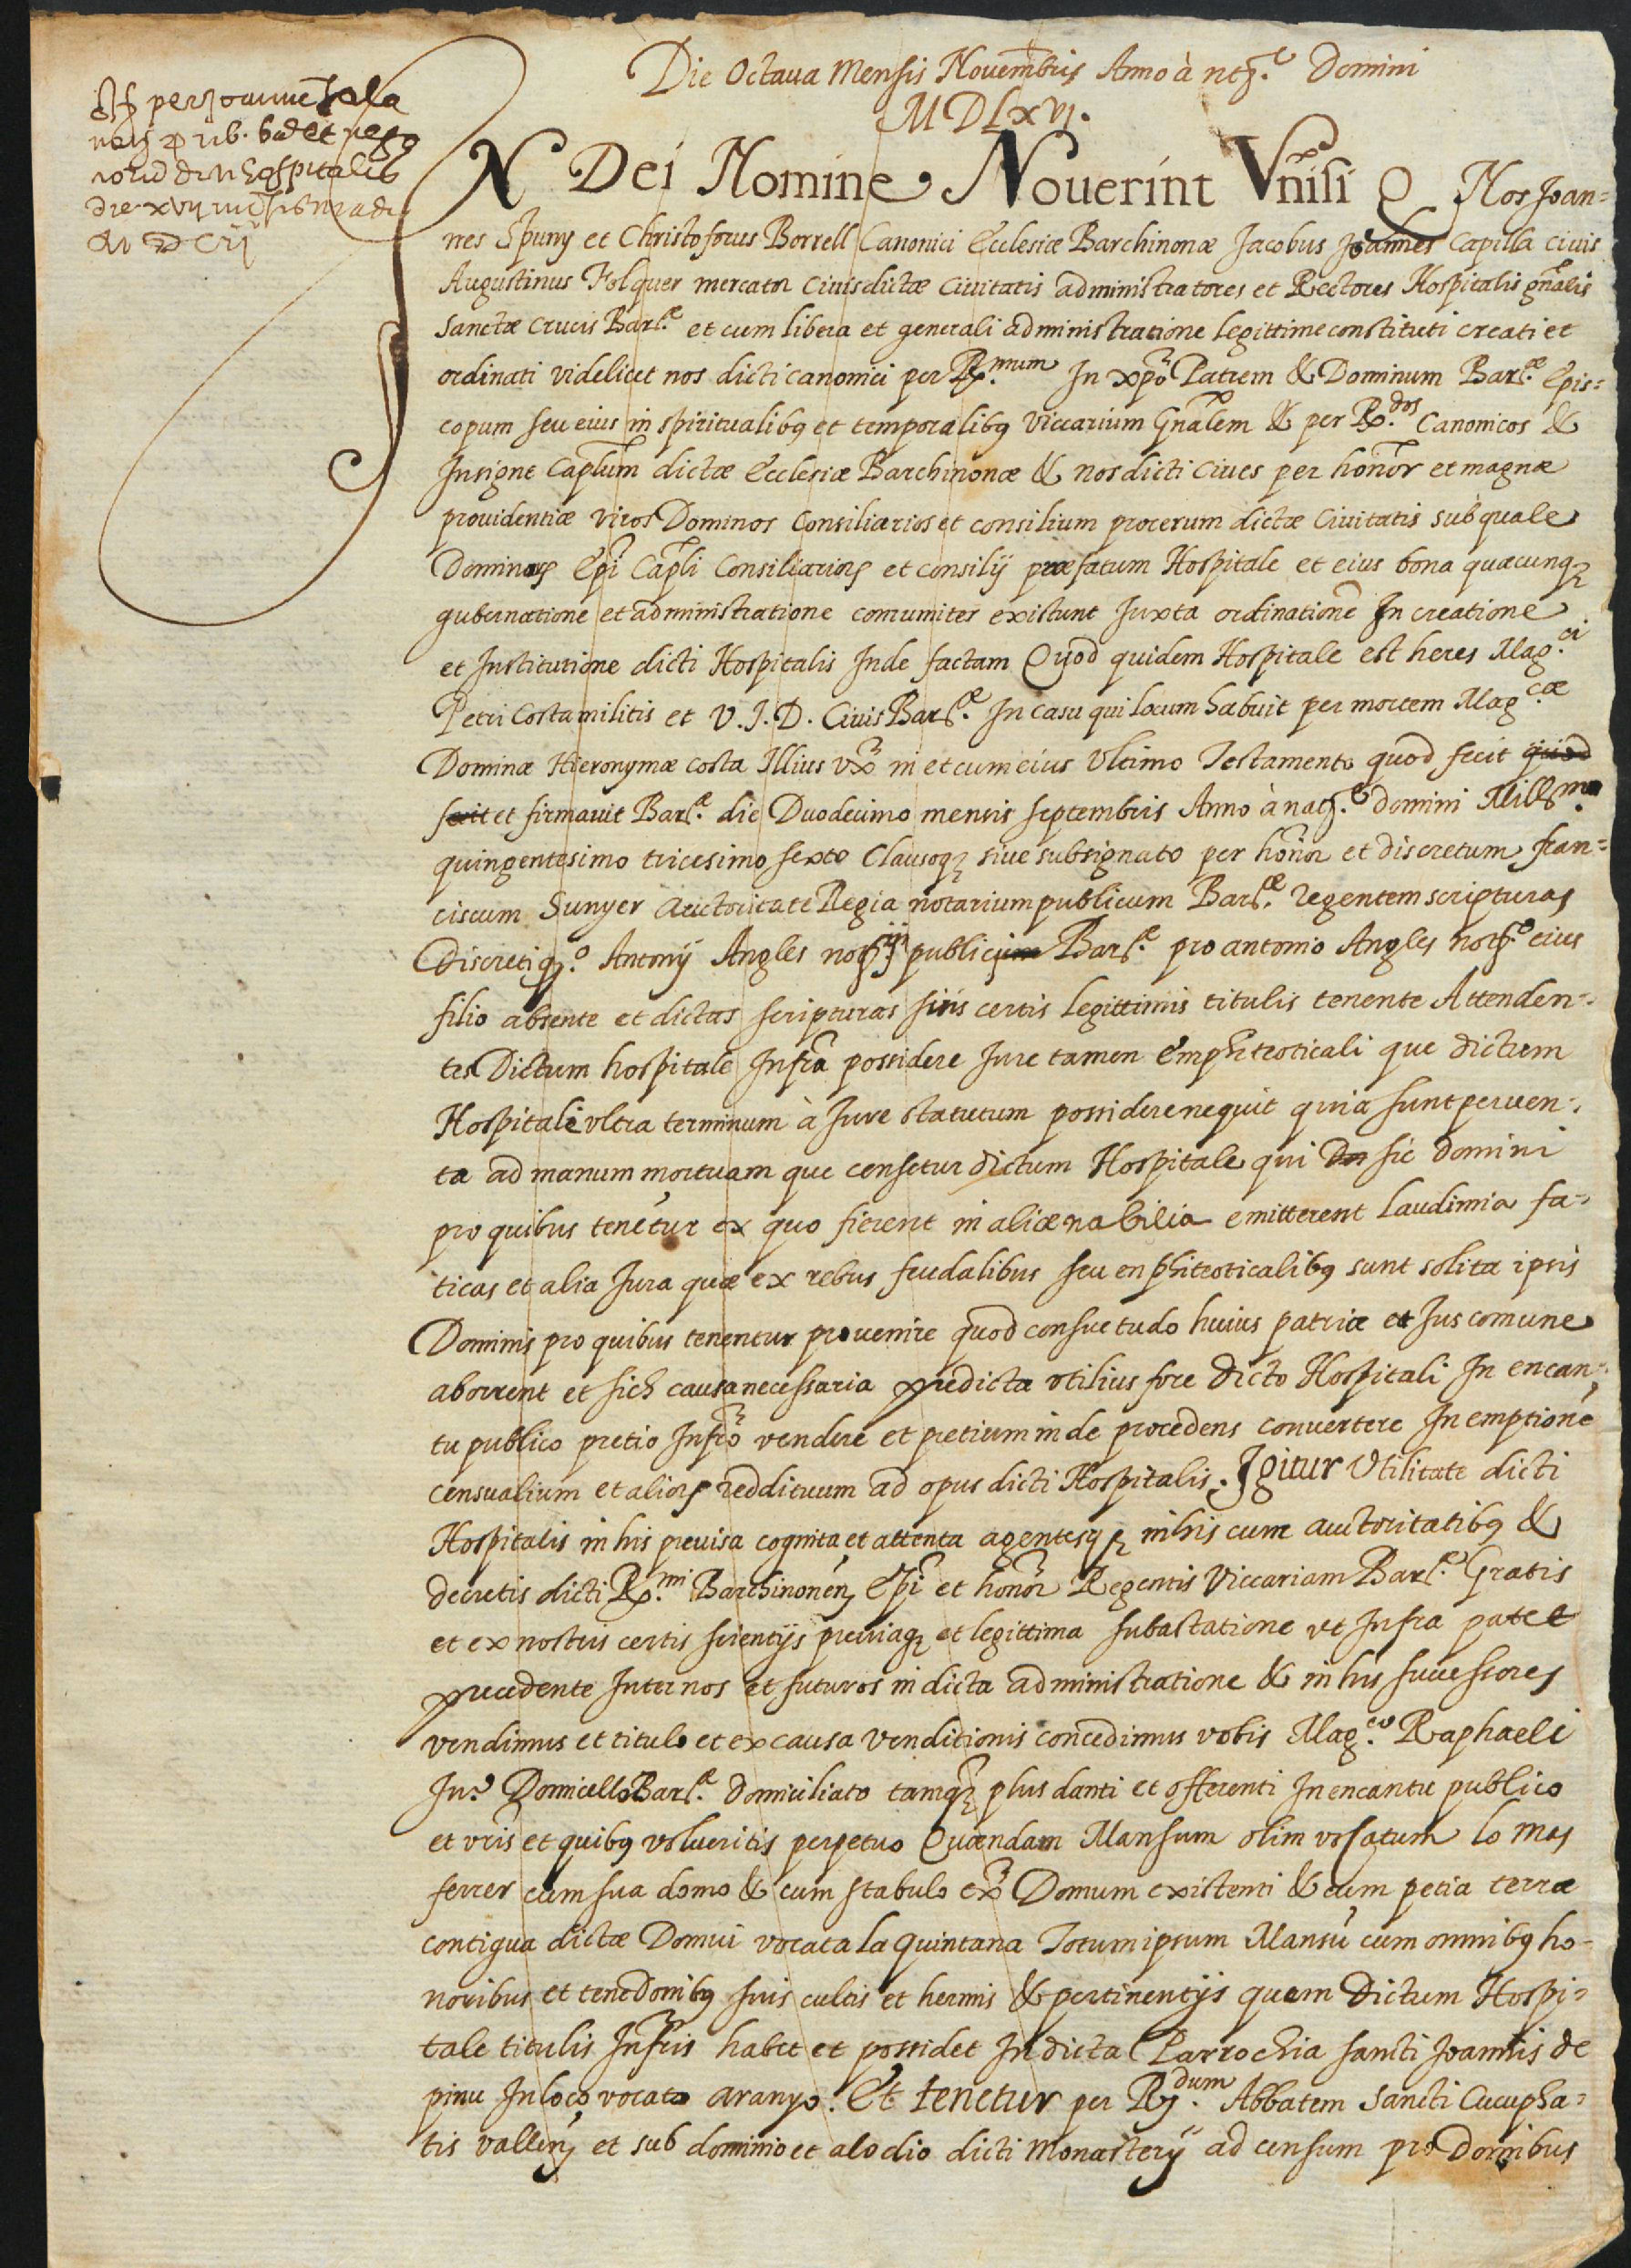 Die Octaua Mensis Nouembris Anno à natᵉ Domini
MDLXVI.
IN Dei Nomine Nouerint Vnisi Q Nos Joan=
nes Spuny et Christoforus Borrell Canonici Ecclesiæ Barchinonæ Jacobus Joannes Capilla Ciuis
Augustinus Folquer mercator Ciuis dictæ Ciuitatis administratores et Rectores Hospitalis gñalis
Sanctæ Crucis Barᵉ et cum libera et generali administratione legittime constituti creati et
ordinati videlicet nos dicti canonici per R.ᵐᵘᵐ In xpō Patrem & Dominum Barᵉ Epis=
copum seu eius in spiritualibꝫ et temporalibꝫ Viccarium Gñalem & per R.ᵈᵒˢ Canonicos &
Insigne Caplum dictæ Ecclesiæ Barchinonæ & nos dicti Ciues per honor et magnæ
prouidentiæ viros Dominos Consiliarios et consilium procerum dictæ Ciuitatis sub quale
Dominoꝝ Epi Capli Consiliarioꝝ et consilij præfatum Hospitale et eius bona quæcunqꝫ
gubernatione et administratione comuniter existunt Juxta ordinatione In creatione
et Institutione dicti Hospitalis Inde factam Quod quidem Hospitale est heres Mag.ᶜⁱ
Petri Costa militis et V. J. D. Ciuis Barᵉ In casu qui locum habuit per mortem Mag.ᶜæ
Dominæ Hieronymæ Costa Illius vxō in et cum eius Vltimo Testamento quod fecit quod
fecit et firmauit Barᵉ die Duodecimo mensis septembris Anno à natᵉ domini Millᵐᵒ
quingentesimo tricesimo sexto Clausoqꝫ siue subsignato per honor et discretum fran=
ciscum Sunyer Auctoritate Regia notarium publicum Barᵉ regentem scripturas
Discreti qº Antonij Angles notarij publici Barᵉ pro antonio Angles notº eius
filio absente et dictas scripturas suis certis legittimis titulis tenente Attenden=
tes Dictum hospitale Infra possidere Jure tamen Emphiteoticali que dictum
Hospitale vltra terminum à Jure statutum possidere nequit quia sunt peruen=
ta ad manum mortuam que censetur dictum Hospitale qui Do sic domini
pro quibus tenetur ex quo fierent in aliænabilia emitterent laudimia fa=
ticas et alia Jura quæ ex rebus feudalibus seu enphiteoticalibꝫ sunt solita ipsis
Dominis pro quibus tenentur prouenire quod consuetudo huius patriæ et Jus comune
aborrent et sich causa necessaria predicta vtilius fore dicto Hospitali In encan=
tu publico pretio Infrō vendere et pretium inde procedens conuertere In emptione
censualium et alioꝝ reddituum ad opus dicti Hospitalis. Igitur Vtilitate dicti
Hospitalis in his preuisa cognita et attenta agentesqꝫ in his cum auctoritatibꝫ &
decretis dicti R.ᵐⁱ Barchinonen Epi et honor Regentis Viccariam Barᵉ Gratis
et ex nostris certis scientijs preuiaqꝫ et legittima subastatione vt Infra patet
precedente Inter nos et futuros in dicta administratione & in his successores
vendimus et titulo et ex causa Venditionis concedimus vobis Mag.ᶜᵒ Raphaeli
Donicello Barᵉ domiciliato tamqꝫ plus danti et offerenti In encantu publico
et vris et quibꝫ volueritis perpetuo Quendam Mansum olim vocatum lo mas
ferrer cum sua domo & cum stabulo ex Domum existenti & cum petia terræ
contigua dictæ Domui vocata la quintana Totum ipsum Mansū cum omnibꝫ ho=
noribus et tenedonibꝫ suis cultis et hermis & pertinentijs quem Dictum Hospi=
tale titulis Infris habet et possidet In dicta Parrochia sancti Joannis de
pinu In loco vocato aranyo. Et tenetur per R.ᵈᵘᵐ Abbatem Sancti Cucupha=
tis vallen et sub dominio et alodio dicti Monasterij ad censum pro Domibus